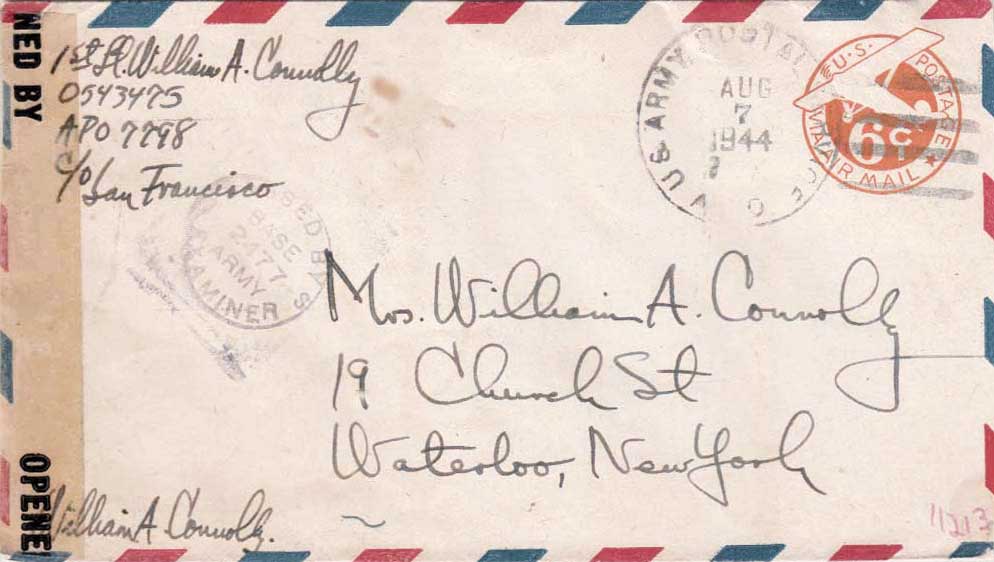 1st Lt. William A. Connolly
0543475
APO 7798
c/o San Francisco
NED BY
OPENE
U.S. ARMY POSTAL
AUG
7
1944
U.S. POSTAGE
6¢
VIA AIR MAIL
SED BY
BASE
2477
ARMY
AMINER
U S
Mrs. William A. Connolly
19 Church St
Waterloo, New York
William A. Connolly.
11213